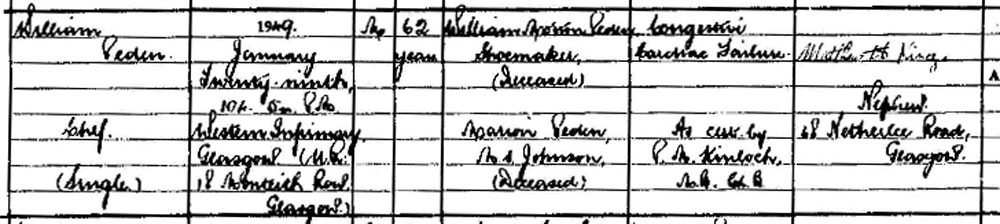 William
Peden.
Chef.
(Single)
1949.
January
Twenty-ninth,
10h. 5m. P.M.
Western Infirmary,
Glasgow (U.R.
18 Monteith Row,
Glasgow.)
M
62
years
William Peden,
Shoemaker,
(Deceased)
Marion Peden,
M.S. Johnson,
(Deceased)
Congestive
Cardiac Failure.
As cert. by
P. M. Kinloch,
M.B. Ch.B
King,
Nephew.
68 Netherlee Road,
Glasgow.
A